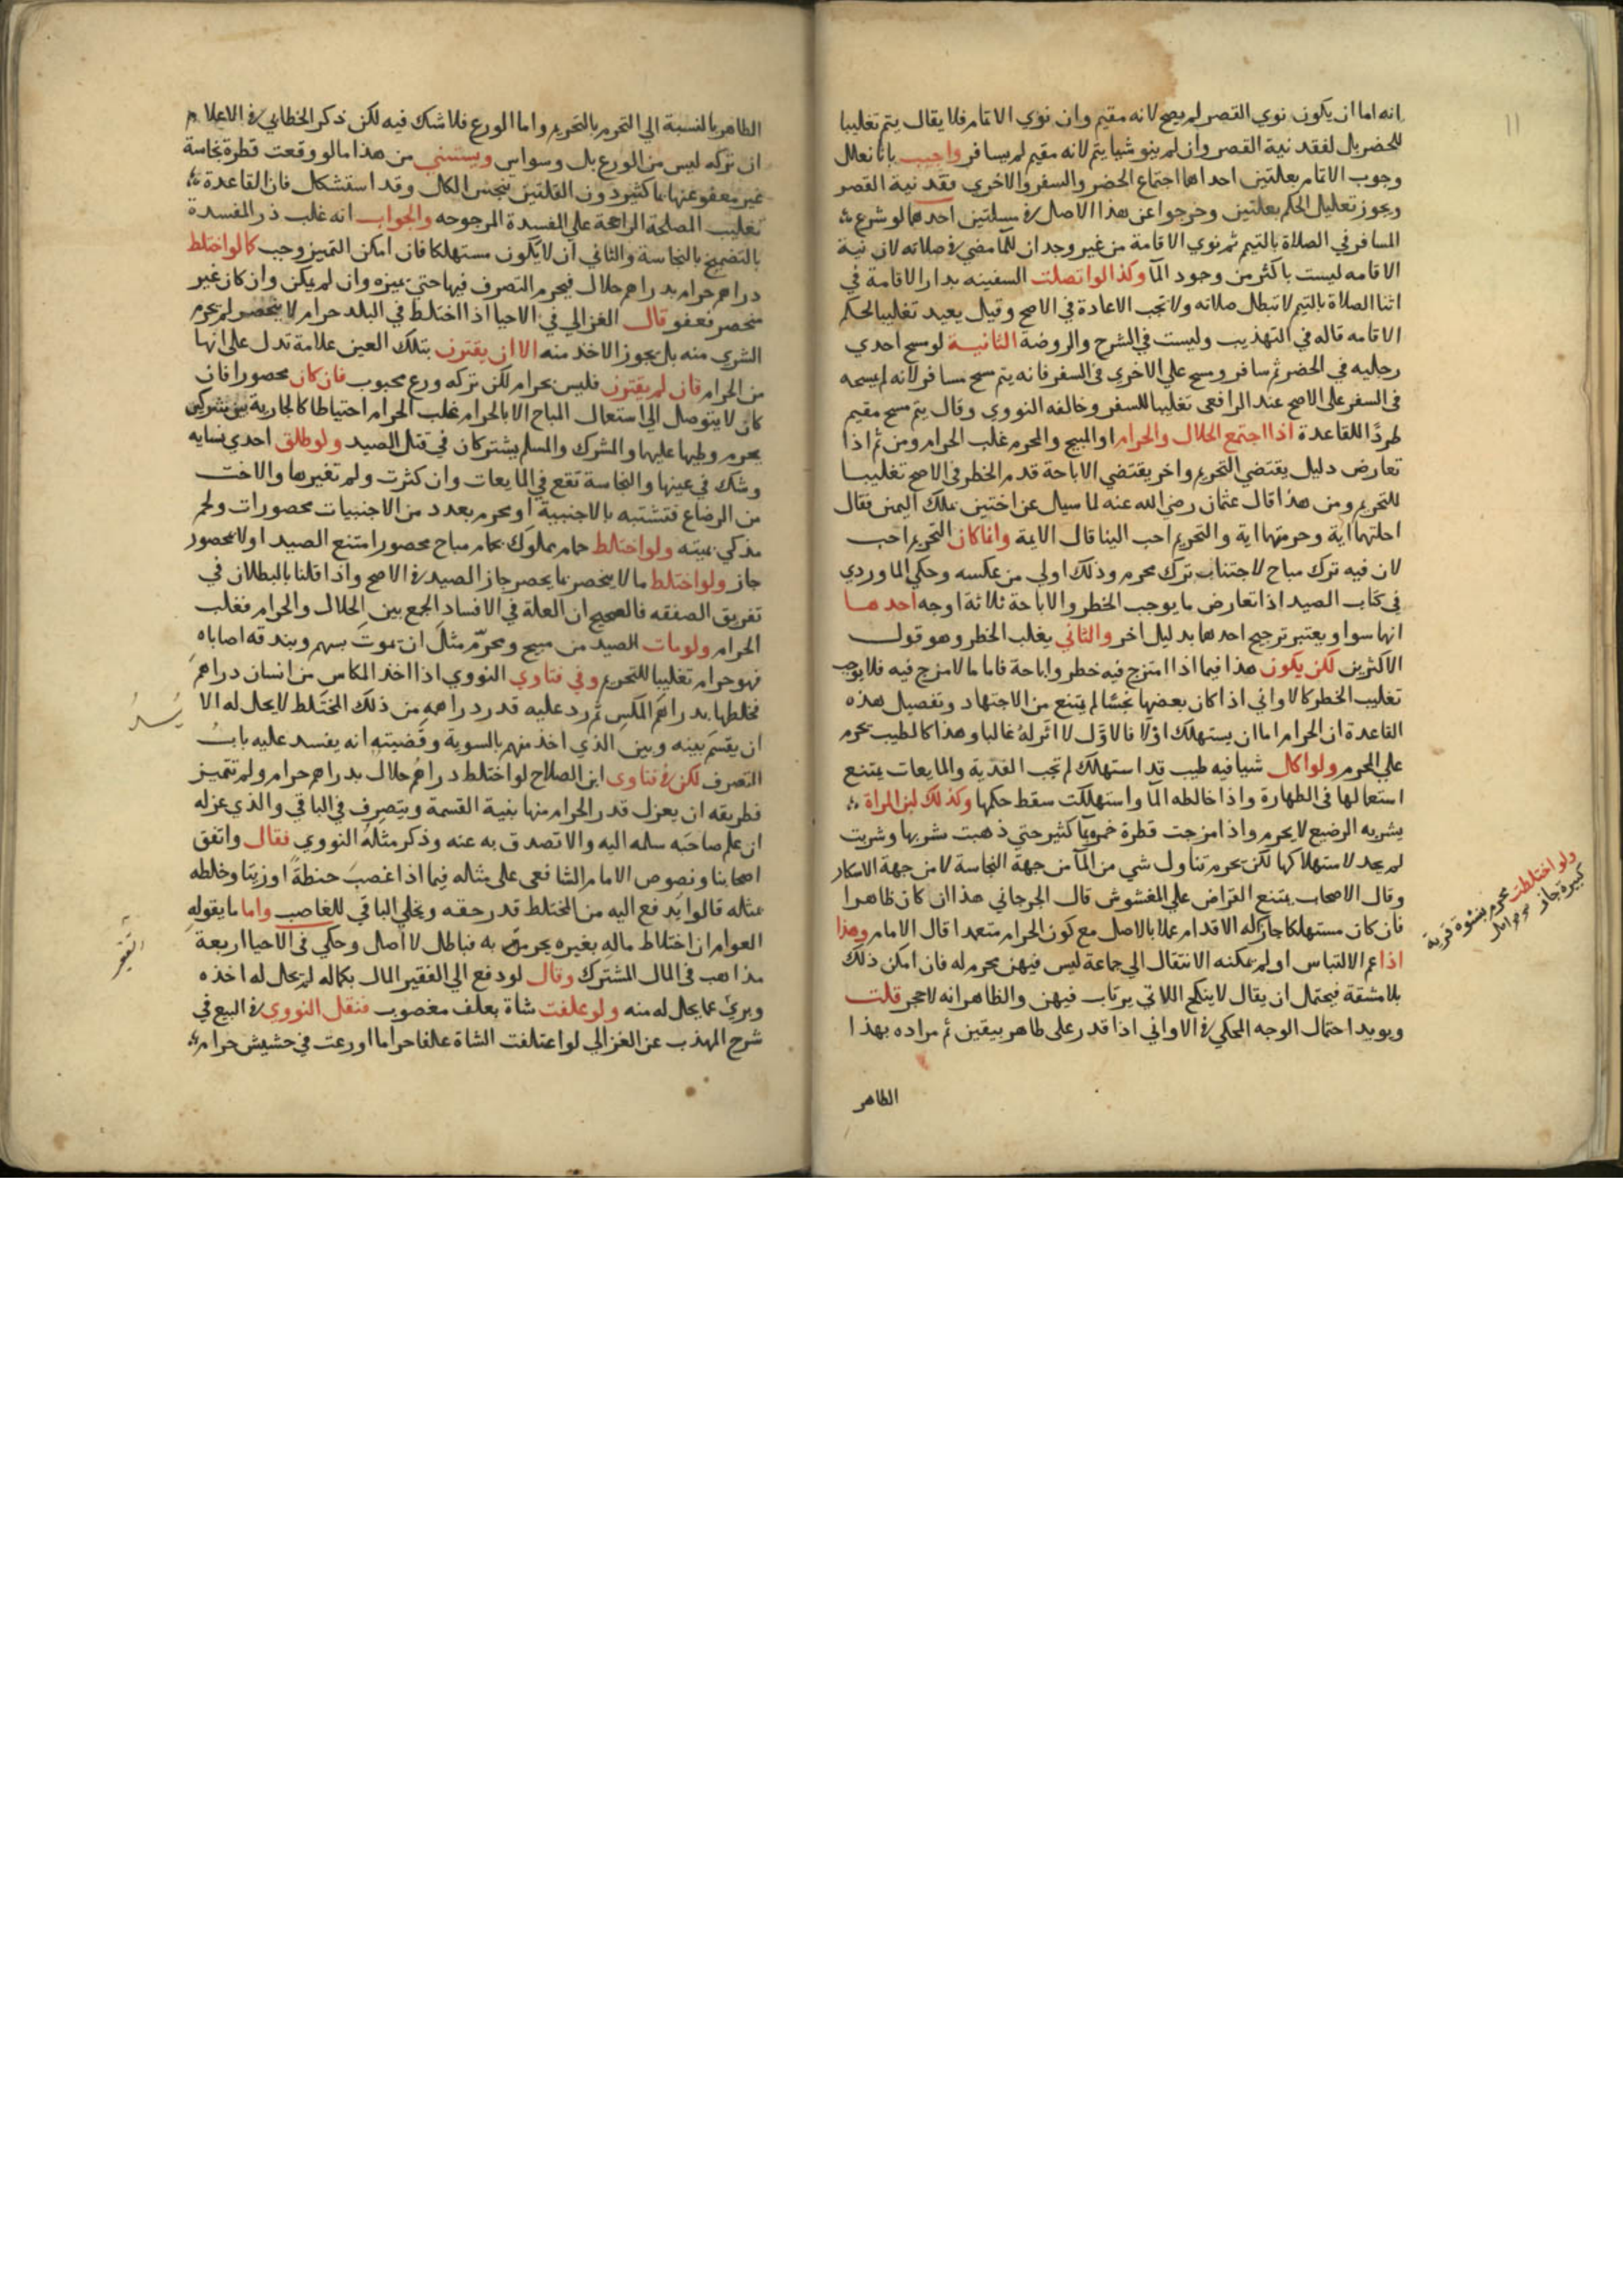 ١١
انه اما ان يكون نوي القصر لم يصح لانه مقيم وان نوي الاتمام فلا يقال يتم تغليبا
للحضر بل لفقد نية القصر وان لم ينو شيا يتم لانه مقيم لم يسافر واجيب بانا نعلل
وجوب الاتمام بعلتين احداهما اجتماع الحضر والسفر والاخري فقد نية القصر
ويجوز تعليل الحكم بعلتين وخرجوا عن هذا الاصل في مسلتين احدهما لو شرع
المسافر في الصلاة بالتيمم ثم نوي الاقامة من غير وجدان للمآ مضي في صلاته لان نية
الاقامه ليست باكثر من وجود المآ وكذا لو اتصلت السفينه بدار الاقامة في
اثنا الصلاة بالتيمم لا تبطل صلاته ولا تجب الاعادة في الاصح وقيل يعيد تغليبا لحكم
الاقامه قاله في التهذيب وليست في الشرح والروضة الثانية لو مسح احدي
رجليه في الحضر ثم سافر ومسح علي الاخري في السفر فانه يتم مسح مسافر لانه لم يمسحه
في السفر علي الاصح عند الرافعي تغليبا للسفر وخالفه النووي وقال يتم مسح مقيم
طردًا للقاعدة اذا اجتمع الحلال والحرام او المبيح والمحرم غلب الحرام ومن ثم اذا
تعارض دليل يقتضي التحريم واخر يقتضي الاباحة قدم الحظر في الاصح تغليبا
للتحريم ومن هذا قال عثمان رضي الله عنه لما سيل عن اختين بملك اليمين فقال
احلتهما اية وحرمتهما اية والتحريم احب الينا قال الايمة وانما كان التحريم احب
لان فيه ترك مباح لاجتناب ترك محرم وذلك اولي من عكسه وحكي الماوردي
في كتاب الصيد اذا تعارض ما يوجب الخطر والاباحة ثلاثة اوجه احدها
انها سوا ويعتبر ترجيح احدها بدليل اخر والثاني يغلب الخطر وهو قول
الاكثرين لكن يكون هذا فيما اذا امتزج فيه خطر واباحة فاما ما لا مزج فيه فلا يوجب
تغليب الخطر كالاواني اذا كان بعضها نجسًا لم يمتنع من الاجتهاد وتفصيل هذه
القاعدة ان الحرام اما ان يستهلك اولا فالاول لا اثر له غالبا وهذا كالطيب يحرم
علي المحرم ولو اكل شيا فيه طيب قد استهلك لم تجب الفدية والمايعات يمتنع
استعمالها في الطهارة واذا خالطه المآ واستهلكت سقط حكمها وكذلك لبن المراة
يشربه الرضيع لا يحرم واذا مزجت قطرة خمر بمآ كثير حتي ذهبت شربها وشربت
لم يحد لاستهلاكها لكن يحرم تناول شي من المآ من جهة النجاسة لا من جهة الاسكار
وقال الاصحاب يمتنع القراض علي المغشوش قال الجرجاني هذا ان كان ظاهرا
فان كان مستهلكا جاز له الاقدام عملا بالاصل مع كون الحرام متعمدا قال الامام وهذا
اذا عم الالتباس او لم يمكنه الانتقال الي جماعة ليس فيهن محرم له فان امكن ذلك
بلا مشقة فيحتمل ان يقال لا ينكح اللاتي يرتاب فيهن والظاهر انه لا حجر قلت
ويويد احتمال الوجه المحكي في الاواني اذا قدر علي طاهر بيقين ثم مراده بهذا
الظاهر
ولو اختلطت محرم بنسوة قرية
كبيرة جاز
الظاهر بالنسبة الي التحريم بالتحريم واما الورع فلا شك فيه لكن ذكر الخطابي في الاعلام
ان تركه ليس من الورع بل وسواس ويستثني من هذا ما لو وقعت قطرة نجاسة
غير معفو عنها بما كثير دون القلتين تنجس الكل وقد استشكل فان القاعدة
تغليب المصلحة الراجحة علي المفسدة المرجوحه والجواب انه غلب در المفسدة
بالتضمخ بالنجاسة والثاني ان لا يكون مستهلكا فان امكن التمييز وجب كما لو اختلط
دراهم حرام بدراهم حلال فيحرم التصرف فيها حتي يميزه وان لم يكن وان كان غير
منحصر فعفو قال الغزالي في الاحيا اذا اختلط في البلد حرام لا ينحصر لم يحرم
الشري منه بل يجوز الاخذ منه الا ان يقترن بتلك العين علامة تدل علي انها
من الحرام فان لم يقترن فليس بحرام لكن تركه ورع محبوب فان كان محصورا فان
كان لا يتوصل الي استعمال المباح الا بالحرام غلب الحرام احتياطا كالجارية بين شريكين
يحرم وطيها عليهما والمشرك والمسلم يشتركان في قتل الصيد ولو طلق احدي نسايه
وشك في عينها والنجاسة تقع في المايعات وان كثرت ولم تغيرها والاخت
من الرضاع فتشتبه بالاجنبية او محرم بعدد من الاجنبيات محصورات ولحم
مذكي بميته ولو اختلط حمام مملوك بحمام مباح محصورا امتنع الصيد او لا محصور
جاز ولو اختلط ما لا ينحصر بما يحصر جاز الصيد في الاصح واذا قلنا بالبطلان في
تفريق الصفقه فالصحيح ان العلة في الافساد الجمع بين الحلال والحرام فغلب
الحرام ولو مات الصيد من مبيح ومحرم مثل ان يموت بسهم وبندقه اصاباه
فهو حرام تغليبا للتحريم وفي فتاوي النووي اذا اخذ المكاس من انسان دراهم
فخلطها بدراهم المكس ثم رد عليه قدر دراهمه من ذلك المختلط لا يحل له الا
ان يقسم بينه وبين الذي اخذ منهم بالسوية وقضيته انه يفسد عليه باب
التصرف لكن في فتاوي ابن الصلاح لو اختلط دراهم حلال بدراهم حرام ولم تتميز
فطريقه ان يعزل قدر الحرام منها بنية القسمة ويتصرف في الباقي والذي عزله
ان علم صاحبه سلمه اليه والا تصدق به عنه وذكر مثله النووي فقال واتفق
اصحابنا ونصوص الامام الشافعي علي مثاله فيما اذا غصب حنطة او زيتا وخلطه
بمثاله قالوا يدفع اليه من المختلط قدر حقه ويحلي الباقي للغاصب واما ما يقوله
العوام ان اختلاط ماله بغيره يحرمه به فباطل لا اصل وحكي في الاحيا اربعة
مذاهب في المال المشترك وقال لو دفع الي الفقير المال بكماله لم يحل له اخذه
وبرئ مما يحل له منه ولو علفت شاة بعلف مغصوب فنقل النووي في البيع في
شرح المهذب عن الغزالي لو اعتلفت الشاة علفا حراما او رعت في حشيش حرام